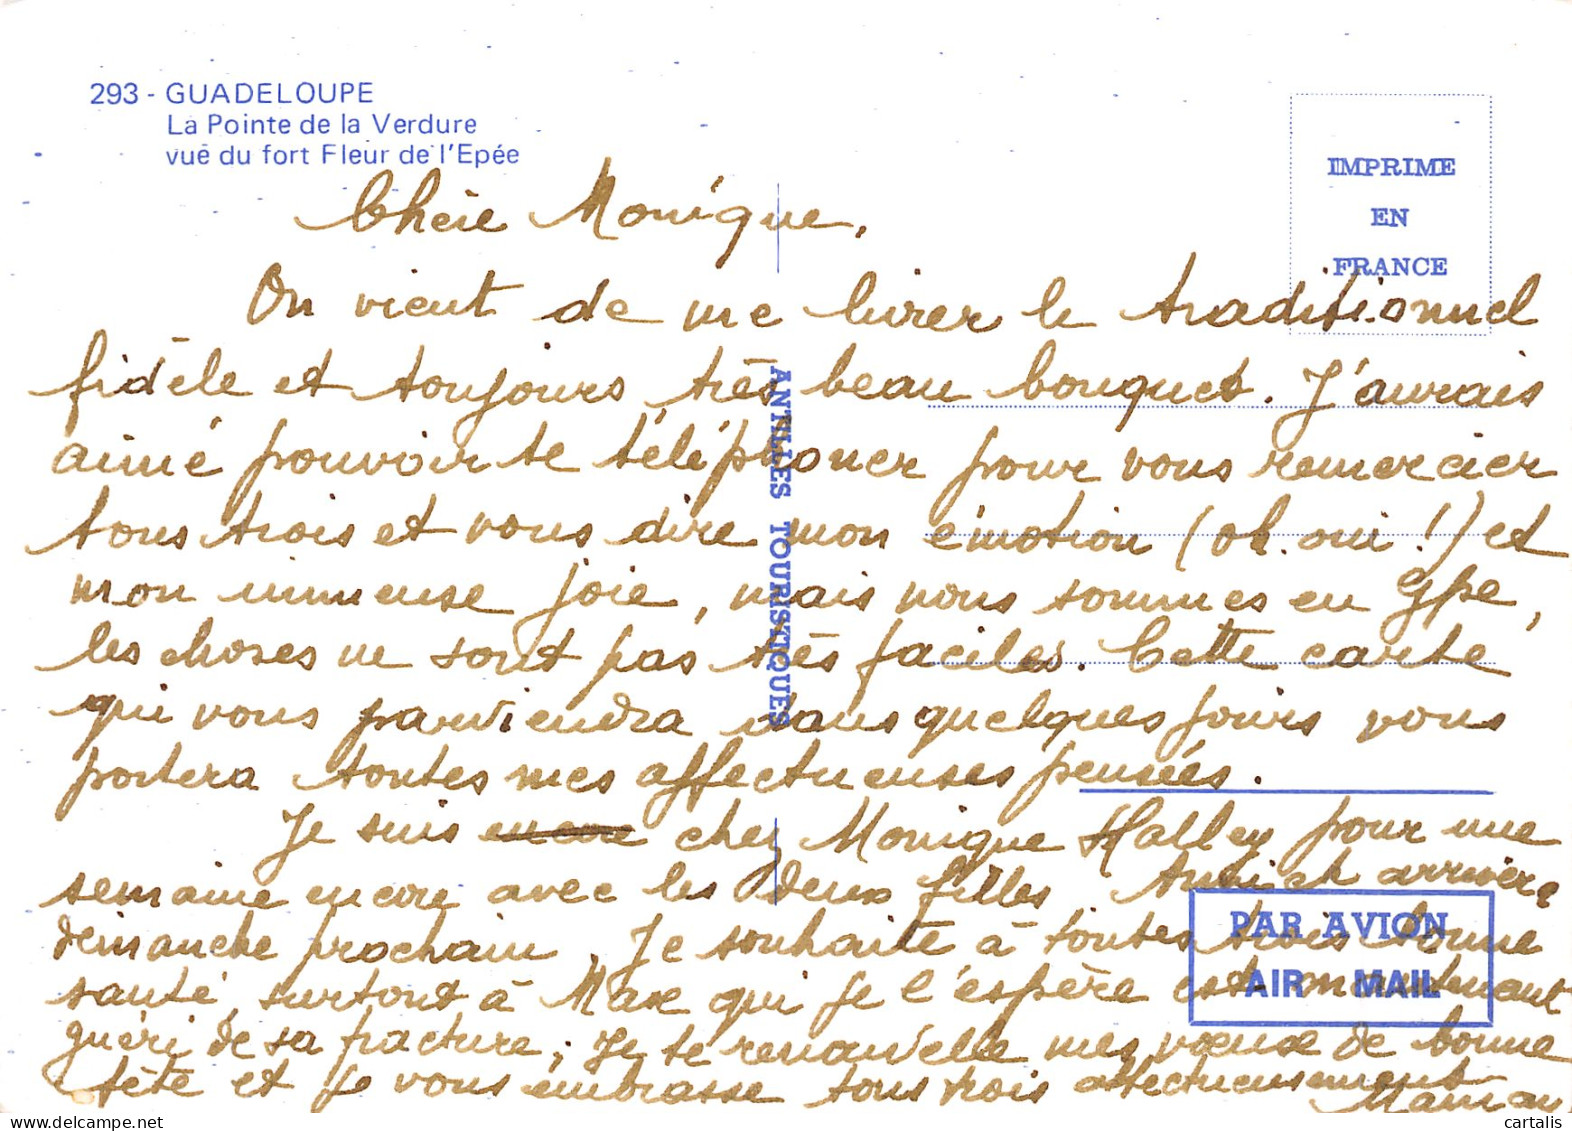 293 - GUADELOUPE
La Pointe de la Verdure
vue du fort Fleur de l'Epée
IMPRIME
EN
FRANCE
ANTILLES TOURISTIQUES
PAR AVION
AIR MAIL
Chère Monique,
On vient de me livrer le traditionnel
fidèle et toujours très beau bouquet. J'aurais
aimé pouvoir te téléphoner pour vous remercier
tous trois et vous dire mon émotion (oh. oui !) et
mon immense joie, mais nous sommes en Gpe,
les choses ne sont pas très faciles. Cette carte
qui vous parviendra dans quelques jours vous
portera toutes mes affectueuses pensées.
Je suis encore chez Monique Halley pour une
semaine encore avec les deux filles. arrivera
dimanche prochain. Je souhaite à toutes trois bonne
santé, surtout à Max qui je l'espère est maintenant
guéri de sa fracture; Je te renouvelle mes vœux de bonne
fête et je vous embrasse tous trois affectueusement
Maman
cartalis